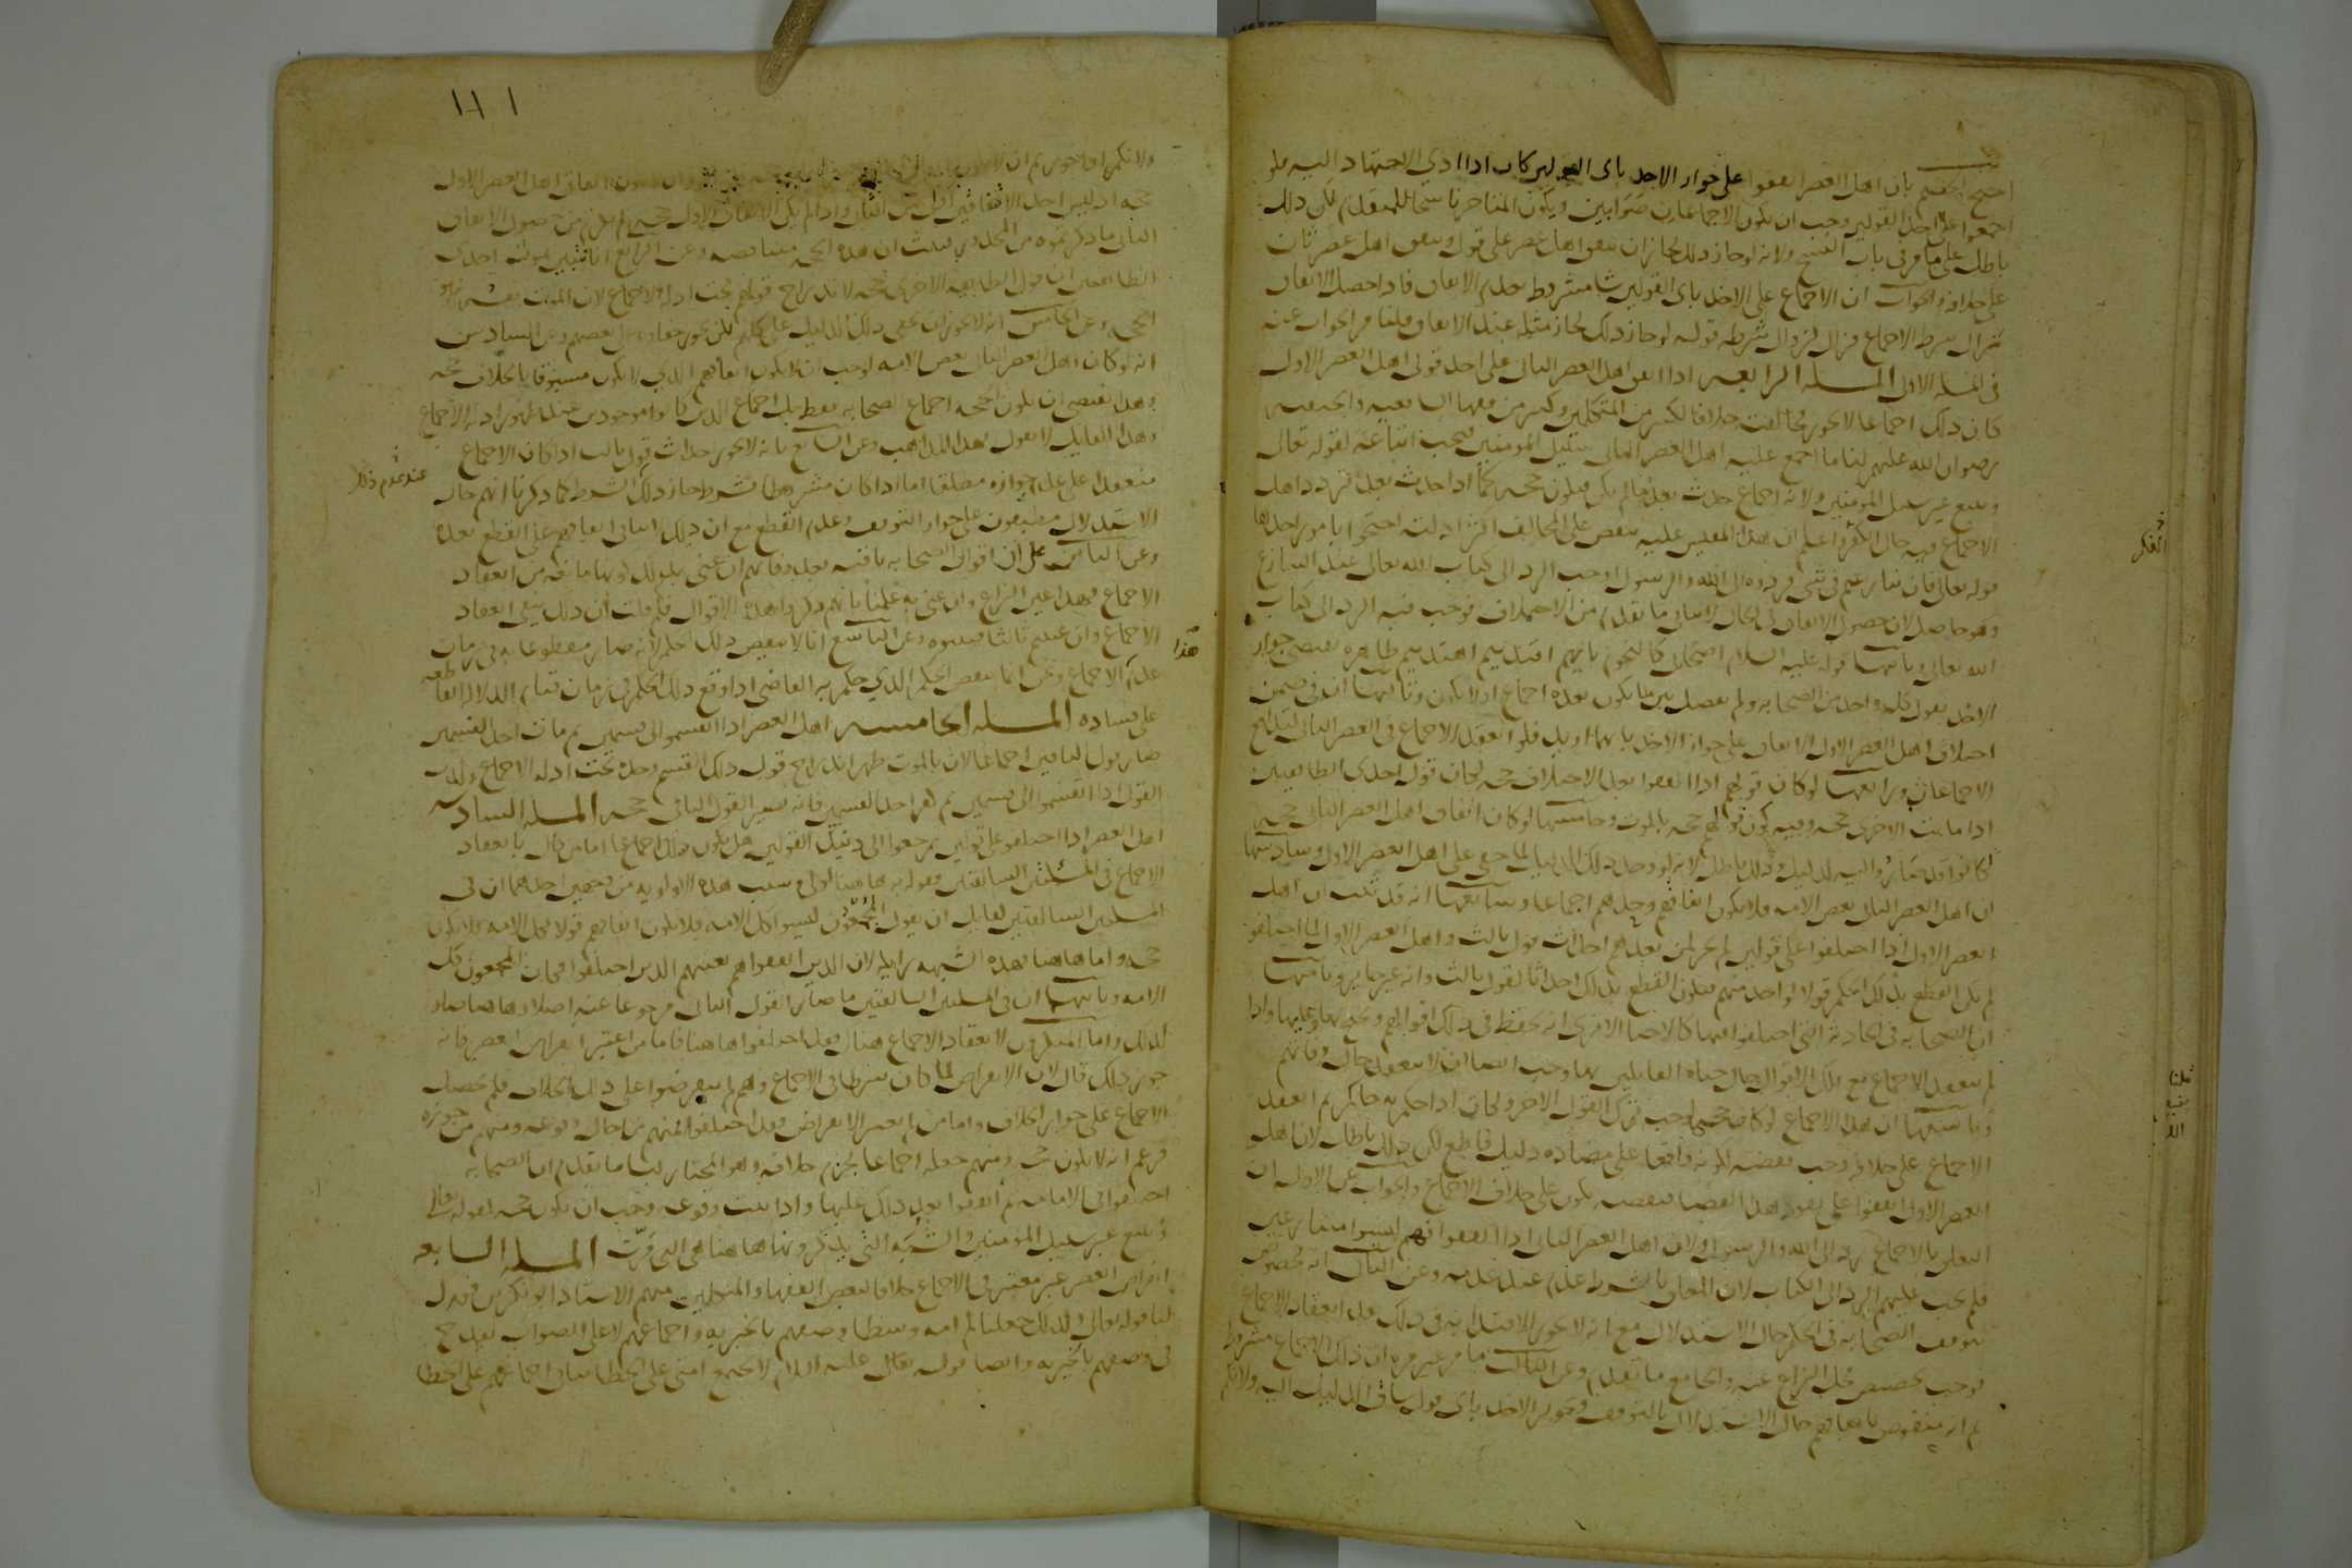 احتج الخصم بان اهل العصر اتفقوا على جواز الاخذ باى القولين كان اذا ادي الاجتهاد اليه فلو
اجمعوا على احد القولين وجب ان يكون الاجماعان صوابين ويكون المتاخر ناسخا للمتقدم لكن ذلك
باطل على ما مر في باب النسخ ولانه لو جاز ذلك لجاز ان يتفق اهل عصر على قول ويتفق اهل عصر ثان
على خلافه والجواب ان الاجماع على الاخذ باى القولين شا مشروط بعدم الاتفاق فاذا حصل الاتفاق
زال شرط الاجماع فزال لزوال شرطه قوله لو جاز ذلك لجاز مثله عند الاتفاق قلنا مر الجواب عنه
فى المسله الاولى المسله الرابعه اذا اتفق اهل العصر الثانى على احد قولى اهل العصر الاول
كان ذلك اجماعا لا تجوز مخالفته خلافا لكثير من المتكلمين وكثير من فقها الشافعيه والحنفيه
رضوان الله عليهم لنا ما اجمع عليه اهل العصر الثانى سبيل المومنين فيجب اتباعه لقوله تعالى
ويتبع غير سبيل المؤمنين ولانه اجماع حدث بعد ما لم يكن فيكون حجه كما اذا حدث بعد تردد اهل
الاجماع فيه حال الفكر واعلم ان هذا المقيس عليه ينقض على المخالف اكثر ادلته احتجوا بامور احدها
قوله تعالى فان تنازعتم فى شى فردوه الى الله والرسول اوجب الرد الى كتاب الله تعالى عند التنازع
وهو حاصل لان حصول الاتفاق فى الحال لا ينافى ما تقدم من الاختلاف فوجب فيه الرد الى كتاب
الله تعالى وثانيها قوله عليه السلام اصحابى كالنجوم بايهم اقتديتم اهتديتم ظاهره يقتضى جواز
الاخذ بقول كل واحد من الصحابه ولم يفصل بين ما يكون بعده اجماع او لا يكون وثالثها ان فى ضمن
اختلاف اهل العصر الاول الاتفاق على جواز الاخذ بايهما اريد فلو انعقد الاجماع فى العصر الثانى لتدافع
الاجماعان ورابعها لو كان قولهم اذا اتفقوا بعد الاختلاف حجه لكان قول احدى الطايفتين
اذا ماتت الاخرى حجه وفيه كون قولهم حجه بالموت وخامسها لو كان اتفاق اهل العصر الثانى حجه
لكانوا قد صاروا اليه لدليل وذلك باطل لانه لو وجد ذلك الدليل لما خفى على اهل العصر الاول وسادسها
ان اهل العصر الثانى بعض الامه فلا يكون اتفاقهم وحدهم اجماعا وسابعها انه قد ثبت ان اهل
العصر الاول اذا اختلفوا على قولين لم يجز لمن بعدهم احداث قول ثالث واهل العصر الاول لما اختلفوا
لم يكن القطع بذلك الحكم قولا لواحد منهم فيكون القطع بذلك احداثا لقول ثالث وانه غير جايز وثامنها
ان الصحابه فى الحادثة التى اختلفوا فيها كالاحيا الا ترى انه يحفظ فى ذلك اقوالهم ويحتج لها وعليها واذا
لم ينعقد الاجماع مع تلك الاقوال حال حياه القايلين بها وجب ايضا ان لا ينعقد حال وفاتهم
وتاسعها ان هذا الاجماع لو كان حجه لوجب ترك القول الاخر ولكان اذا حكم به حاكم ثم انعقد
الاجماع على خلافه وجب نقضه لكونه واقعا على مضاده دليل قاطع لكن ذلك باطل لان اهل
العصر الاول اتفقوا على نفوذ هذا القضا فنقضه يكون على خلاف الاجماع والجواب عن الاول ان
التعلق بالاجماع رد الى الله والرسول ولان اهل العصر الثانى اذا اتفقوا فهم ليسوا متنازعين
فلم يجب عليهم الرد الى الكتاب لان المعلق بالشرط عدم عند عدمه وعن الثانى انه مخصوص
بتوقف الصحابه فى الحكم حال الاستدلال مع انه لا يجوز الاقتدا به فى ذلك بعد انعقاد الاجماع
فوجب تخصيص محل النزاع عنه والجامع ما تقدم وعن الثالث ما مر غير مره ان ذلك الاجماع مشروط
ثم انه منقوض باتفاقهم حال الاستدلال بالتوقف وتجويز الاخذ باى قول ساق الدليل اليه ولانكم
الفكر
قلنا
١١١
ولانكم اذا جوزتم ان
حجه اذ ليس احد الاتفاقين اولى من الثانى واذا لم يكن الاتفاق الاول حجه لم يلزم من حصول الاتفاق
الثانى ما ذكرتموه من المحذور فثبت ان هذه الحجه متناقضه وعن الرابع انا نتبين بموت احدى
الطايفتين ان قول الطايفه الاخرى حجه لاندراج قولهم تحت ادله الاجماع لان الموت نفسه هو
الحجه وعن الخامس انه لا يجوز ان يخفى ذلك الدليل على كلهم لكن يجوز خفاوه على بعضهم وعن السادس
انه لو كان اهل العصر الثانى بعض الامه لوجب ان لا يكون اتفاقهم الذى لا يكون مسبوقا بالخلاف حجه
وهذا يقتضى ان يكون الحجه اجماع الصحابه فقط بل اجماع الذين كانوا موجودين عند ظهور ادله الاجماع
وهذا القايل لا يقول بهذا المذهب وعن السابع بانه لا يجوز احداث قول ثالث اذا كان الاجماع
منعقدا على عدم جوازه مطلقا اما اذا كان مشروطا بشرط جاز ذلك الشرط كما ذكرنا انهم حال
الاستدلال مطبقون على جواز التوقف وعدم القطع مع ان ذلك لا ينافى اتفاقهم على القطع بعده
وعن الثامن على ان اقوال الصحابه باقيه بعد وفاتهم ان عنى بذلك كونها مانعه من انعقاد
الاجماع فهذا عين النزاع وان عنى به علمنا بانهم ذكروا هذه الاقوال فلم قلت ان ذلك ينفى انعقاد
الاجماع وان عنيتم ثالثا فبينوه وعن التاسع انا لا ننقض ذلك الحكم لانه صار مقطوعا به فى زمان
عدم الاجماع ونحن انما ننقض الحكم الذي حكم به القاضى اذا وقع ذلك الحكم فى زمان قيام الدلاله القاطعه
على فساده المسله الخامسه اهل العصر اذا انقسموا الى قسمين ثم مات احد القسمين
صار قول الباقين اجماعا لان بالموت ظهر اندراج قول ذلك القسم وحده تحت ادله الاجماع وكذلك
القول اذا انقسموا الى قسمين ثم كفر احد القسمين فانه يصير القول الثانى حجه المسله السادسه
اهل العصر اذا اختلفوا على قولين ثم رجعوا الى احد ذينك القولين هل يكون ذلك اجماعا اما من قال بانعقاد
الاجماع فى المسئلتين السابقتين فقوله به هاهنا اولى وسبب هذه الاولويه من وجهين احدهما ان فى
المسلتين السالفتين لقايل ان يقول المجمعون ليسوا كل الامه فلا يكون اتفاقهم قولا لكل الامه فلا يكون
حجه واما هاهنا فهذه الشبهه زايله لان الذين اتفقوا هم بعينهم الذين اختلفوا فكان المجمعون كل
الامه وثانيهما ان فى المسلتين السالفتين ما صار القول الثانى مرجوعا عنه اصلا وهاهنا صار
كذلك واما المنكرون لانعقاد الاجماع هناك فقد اختلفوا هاهنا فاما من اعتبر انقراض العصر فانه
جوز ذلك قال لان الانقراض لما كان شرطا فى الاجماع وهم لم ينقرضوا على ذلك الخلاف فلم يحصل
الاجماع على جواز الخلاف واما من لم يعتبر الانقراض فقد اختلفوا فمنهم من احال وقوعه ومنهم من جوزه
فزعم انه لا يكون حجه ومنهم جعله اجماعا يحرم خلافه وهو المختار لنا ما تقدم ان الصحابه
اختلفوا فى الامامه ثم اتفقوا بعد ذلك عليها واذا ثبت وقوعه وجب ان يكون حجه لقوله تعالى
ويتبع غير سبيل المؤمنين والشبه التى يذكرونها هاهنا هى التى مرت المسله السابعه
انقراض العصر غير معتبر فى الاجماع خلافا لبعض الفقها والمتكلمين منهم الاستاذ ابو بكر بن فورك
لنا قوله تعالى وكذلك جعلناكم امه وسطا وصفهم بالخيريه واجماعهم لا على الصواب يقدح
فى وصفهم بالخيريه وايضا قوله عليه السلام لا تجتمع امتى على الخطا ينافى اجماعهم على الخطا
هذا